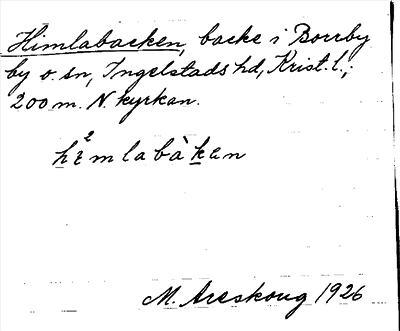 Himlabacken, backe i Borrby
by o. sn, Ingelstads hd, Krist. l.;
200 m. N. kyrkan.
hɪ²mlabàkan
M. Areskoug 1926